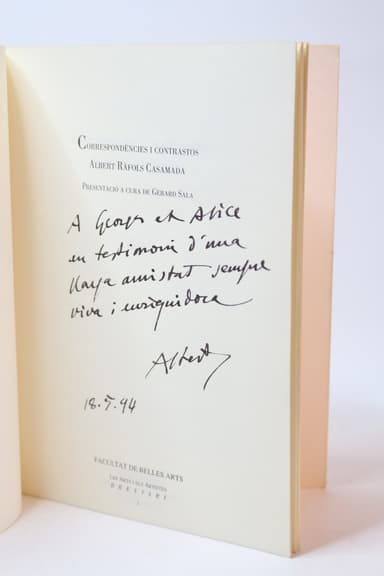 CORRESPONDÈNCIES I CONTRASTOS
ALBERT RÀFOLS CASAMADA
PRESENTACIÓ A CURA DE GERARD SALA
A Georges et Alice
en testimoni d'una
llarga amistat sempre
viva i enriquidora
Albert
18.5.94
FACULTAT DE BELLES ARTS
LES ARTS I ELS ARTISTES